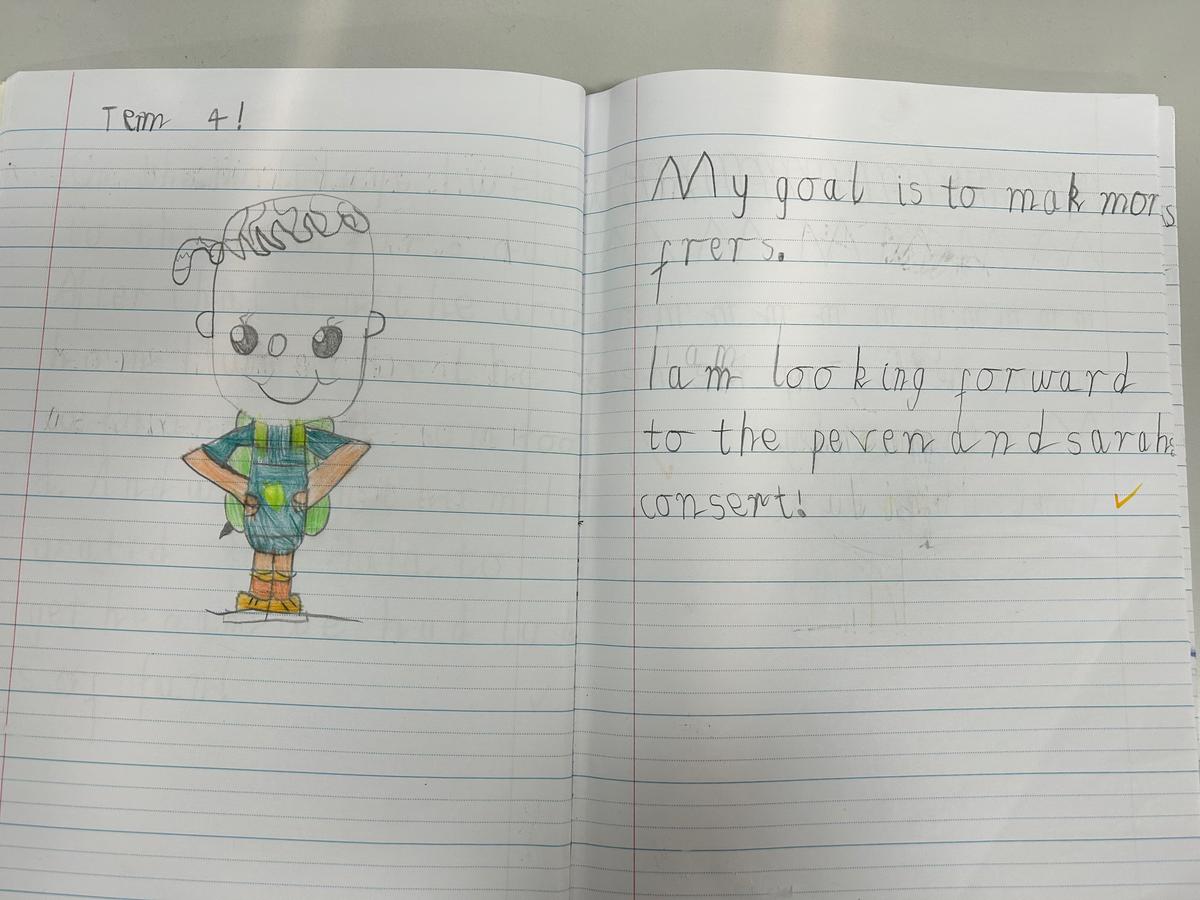 Term 4!
My goal is to mak mors
frers.
I am looking forward
to the peven and sarah
consert!